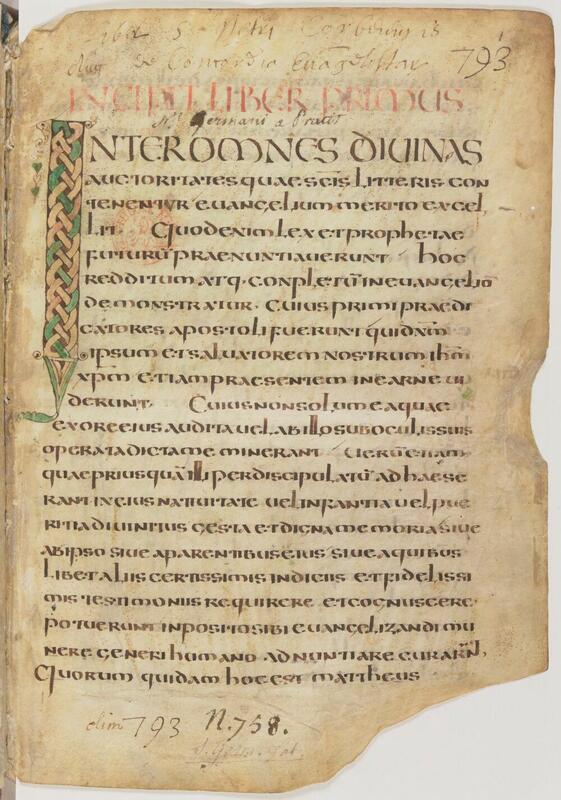 Liber S. Petri Corbeiensis
1
Aug. de Concordia Euangelistar
793
INCIPIT LIBER PRIMUS
Sti Germani a Pratis
INTEROMNES DIUINAS
AUCTORITATESQUAESCIS LITTERIS CON
TENENTUR EUANGELIUM MERITO EXCEL
LIT QUODENIM LEX ET PROPHETAE
FUTURU PRAENUNTIAUERUNT HOC
REDDITUM ATQ· CONPLETU IN EUANGELIO
DEMONSTRATUR· CUIUS PRIMI PRAEDI
CATORES APOSTOLI FUERUNT QUI DNM
IPSUM ET SALUATOREM NOSTRUM IHM
XPM ETIAM PRAESENTEM IN CARNE UI
DERUNT· CUIUS NON SOLUM EA QUAE
EX ORE EIUS AUDITA UEL AB ILLO SUB OCULIS SUIS
OPERATA DICTA MEMINERANT UERU ETIAM
QUAE PRIUS QUA ILLI PER DISCIPULATU ADHAESE
RANT IN EIUS NATIUITATE UEL INFANTIA UEL PUE
RITIA DIUINITUS GESTA ET DIGNA MEMORIA SIUE
AB IPSO SIUE A PARENTIBUS EIUS SIUE A QUIBUS
LIBET ALIIS CERTISSIMIS INDICIIS ET FIDELISSI
MIS TESTIMONIIS REQUIRERE ET COGNUSCERE
POTUERUNT INPOSITO SIBI EUANGELIZANDI MU
NERE GENERI HUMANO ADNUNTIARE CURARN·
QUORUM QUIDAM HOC EST MATTHEUS
olim 793 N. 758.
S. Germ. Lat.